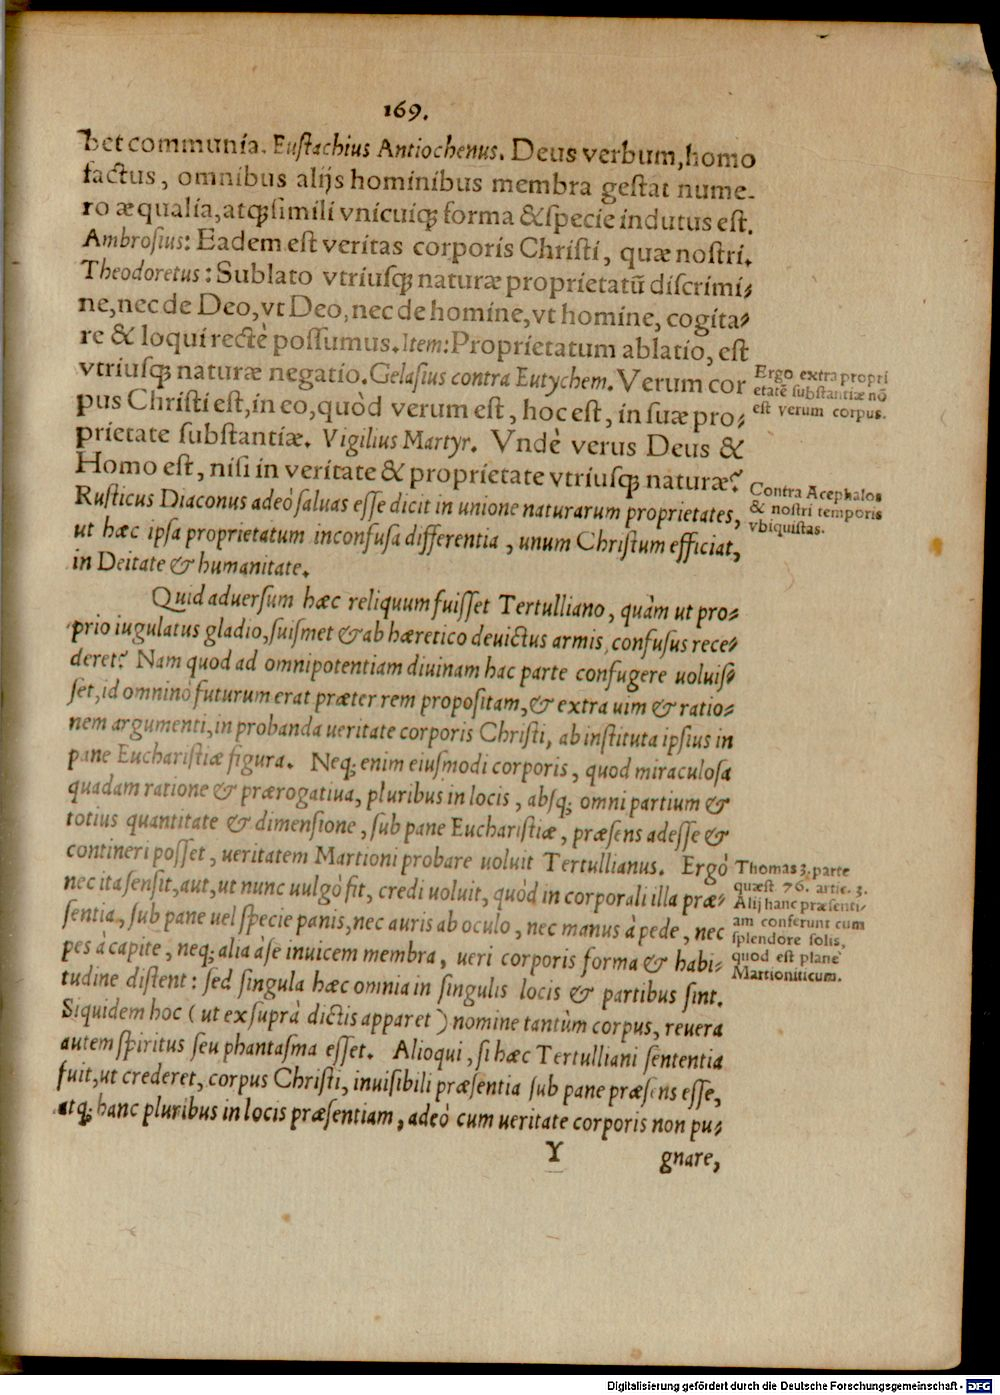 169.
bet communia. Eustachius Antiochenus. Deus verbum, homo
factus, omnibus alijs hominibus membra gestat nume-
ro æqualia, atq; simili vnicuiq; forma & specie indutus est.
Ambrosius: Eadem est veritas corporis Christi, quæ nostri.
Theodoretus: Sublato vtriusq; naturæ proprietatũ discrimi-
ne, nec de Deo, vt Deo, nec de homine, vt homine, cogita-
re & loqui rectè possumus. Item: Proprietatum ablatio, est
vtriusq; naturæ negatio. Gelasius contra Eutychem. Verum cor
pus Christi est, in eo, quòd verum est, hoc est, in suæ pro-
prietate substantiæ. Vigilius Martyr. Vndè verus Deus &
Homo est, nisi in veritate & proprietate vtriusq; naturæ?
Rusticus Diaconus adeò saluas esse dicit in unione naturarum proprietates,
ut hæc ipsa proprietatum inconfusa differentia, unum Christum efficiat,
in Deitate & humanitate.
Ergo extra propri
etatẽ substantiæ nõ
est verum corpus.
Contra Acephalos
& nostri temporis
vbiquistas.
Quid aduersum hæc reliquum fuisset Tertulliano, quàm ut pro-
prio iugulatus gladio, suismet & ab hæretico deuictus armis, confusus rece-
deret? Nam quod ad omnipotentiam diuinam hac parte confugere uoluis-
set, id omninò futurum erat præter rem propositam, & extra uim & ratio-
nem argumenti, in probanda ueritate corporis Christi, ab instituta ipsius in
pane Eucharistiæ figura. Neq; enim eiusmodi corporis, quod miraculosa
quadam ratione & prærogatiua, pluribus in locis, absq; omni partium &
totius quantitate & dimensione, sub pane Eucharistiæ, præsens adesse &
contineri posset, ueritatem Martioni probare uoluit Tertullianus. Ergò
nec ita sensit, aut, ut nunc uulgò fit, credi uoluit, quòd in corporali illa præ-
sentia, sub pane uel specie panis, nec auris ab oculo, nec manus à pede, nec
pes à capite, neq; alia à se inuicem membra, ueri corporis forma & habi-
tudine distent: sed singula hæc omnia in singulis locis & partibus sint.
Siquidem hoc (ut ex suprà dictis apparet) nomine tantùm corpus, reuera
autem spiritus seu phantasma esset. Alioqui, si hæc Tertulliani sententia
fuit, ut crederet, corpus Christi, inuisibili præsentia sub pane præsens esse,
atq; hanc pluribus in locis præsentiam, adeò cum ueritate corporis non pu-
Thomas 3. parte
quæst 76. artic. 3.
Alij hanc præsenti-
am conferunt cum
splendore solis,
quod est planè
Martioniticum.
Y
gnare,
Digitalisierung gefördert durch die Deutsche Forschungsgemeinschaft - DFG